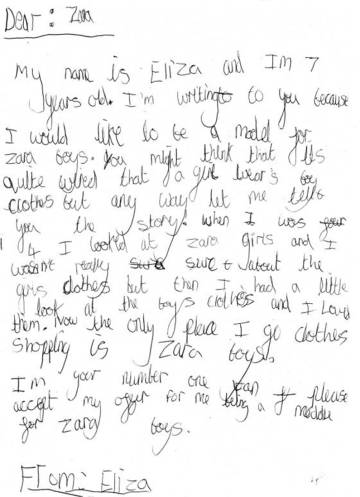 Dear: Zara
My name is Eliza and Im 7
years old. I'm writing to you because
I would like to be a model for
zara boys. you might think that Its
quite wired that a girl wear's boy
clothes but any way let me tell
you the story. when I was
4 I looked at zara girls and I
wasn't really sure about the
girls clothes but then I had a little
look at the boys clothes and I Loved
them. Now the only place I go clothes
shopping is Zara boys.
I'm your number one fan
accept my offer for me being a please
modle
for zara boys.
From: Eliza